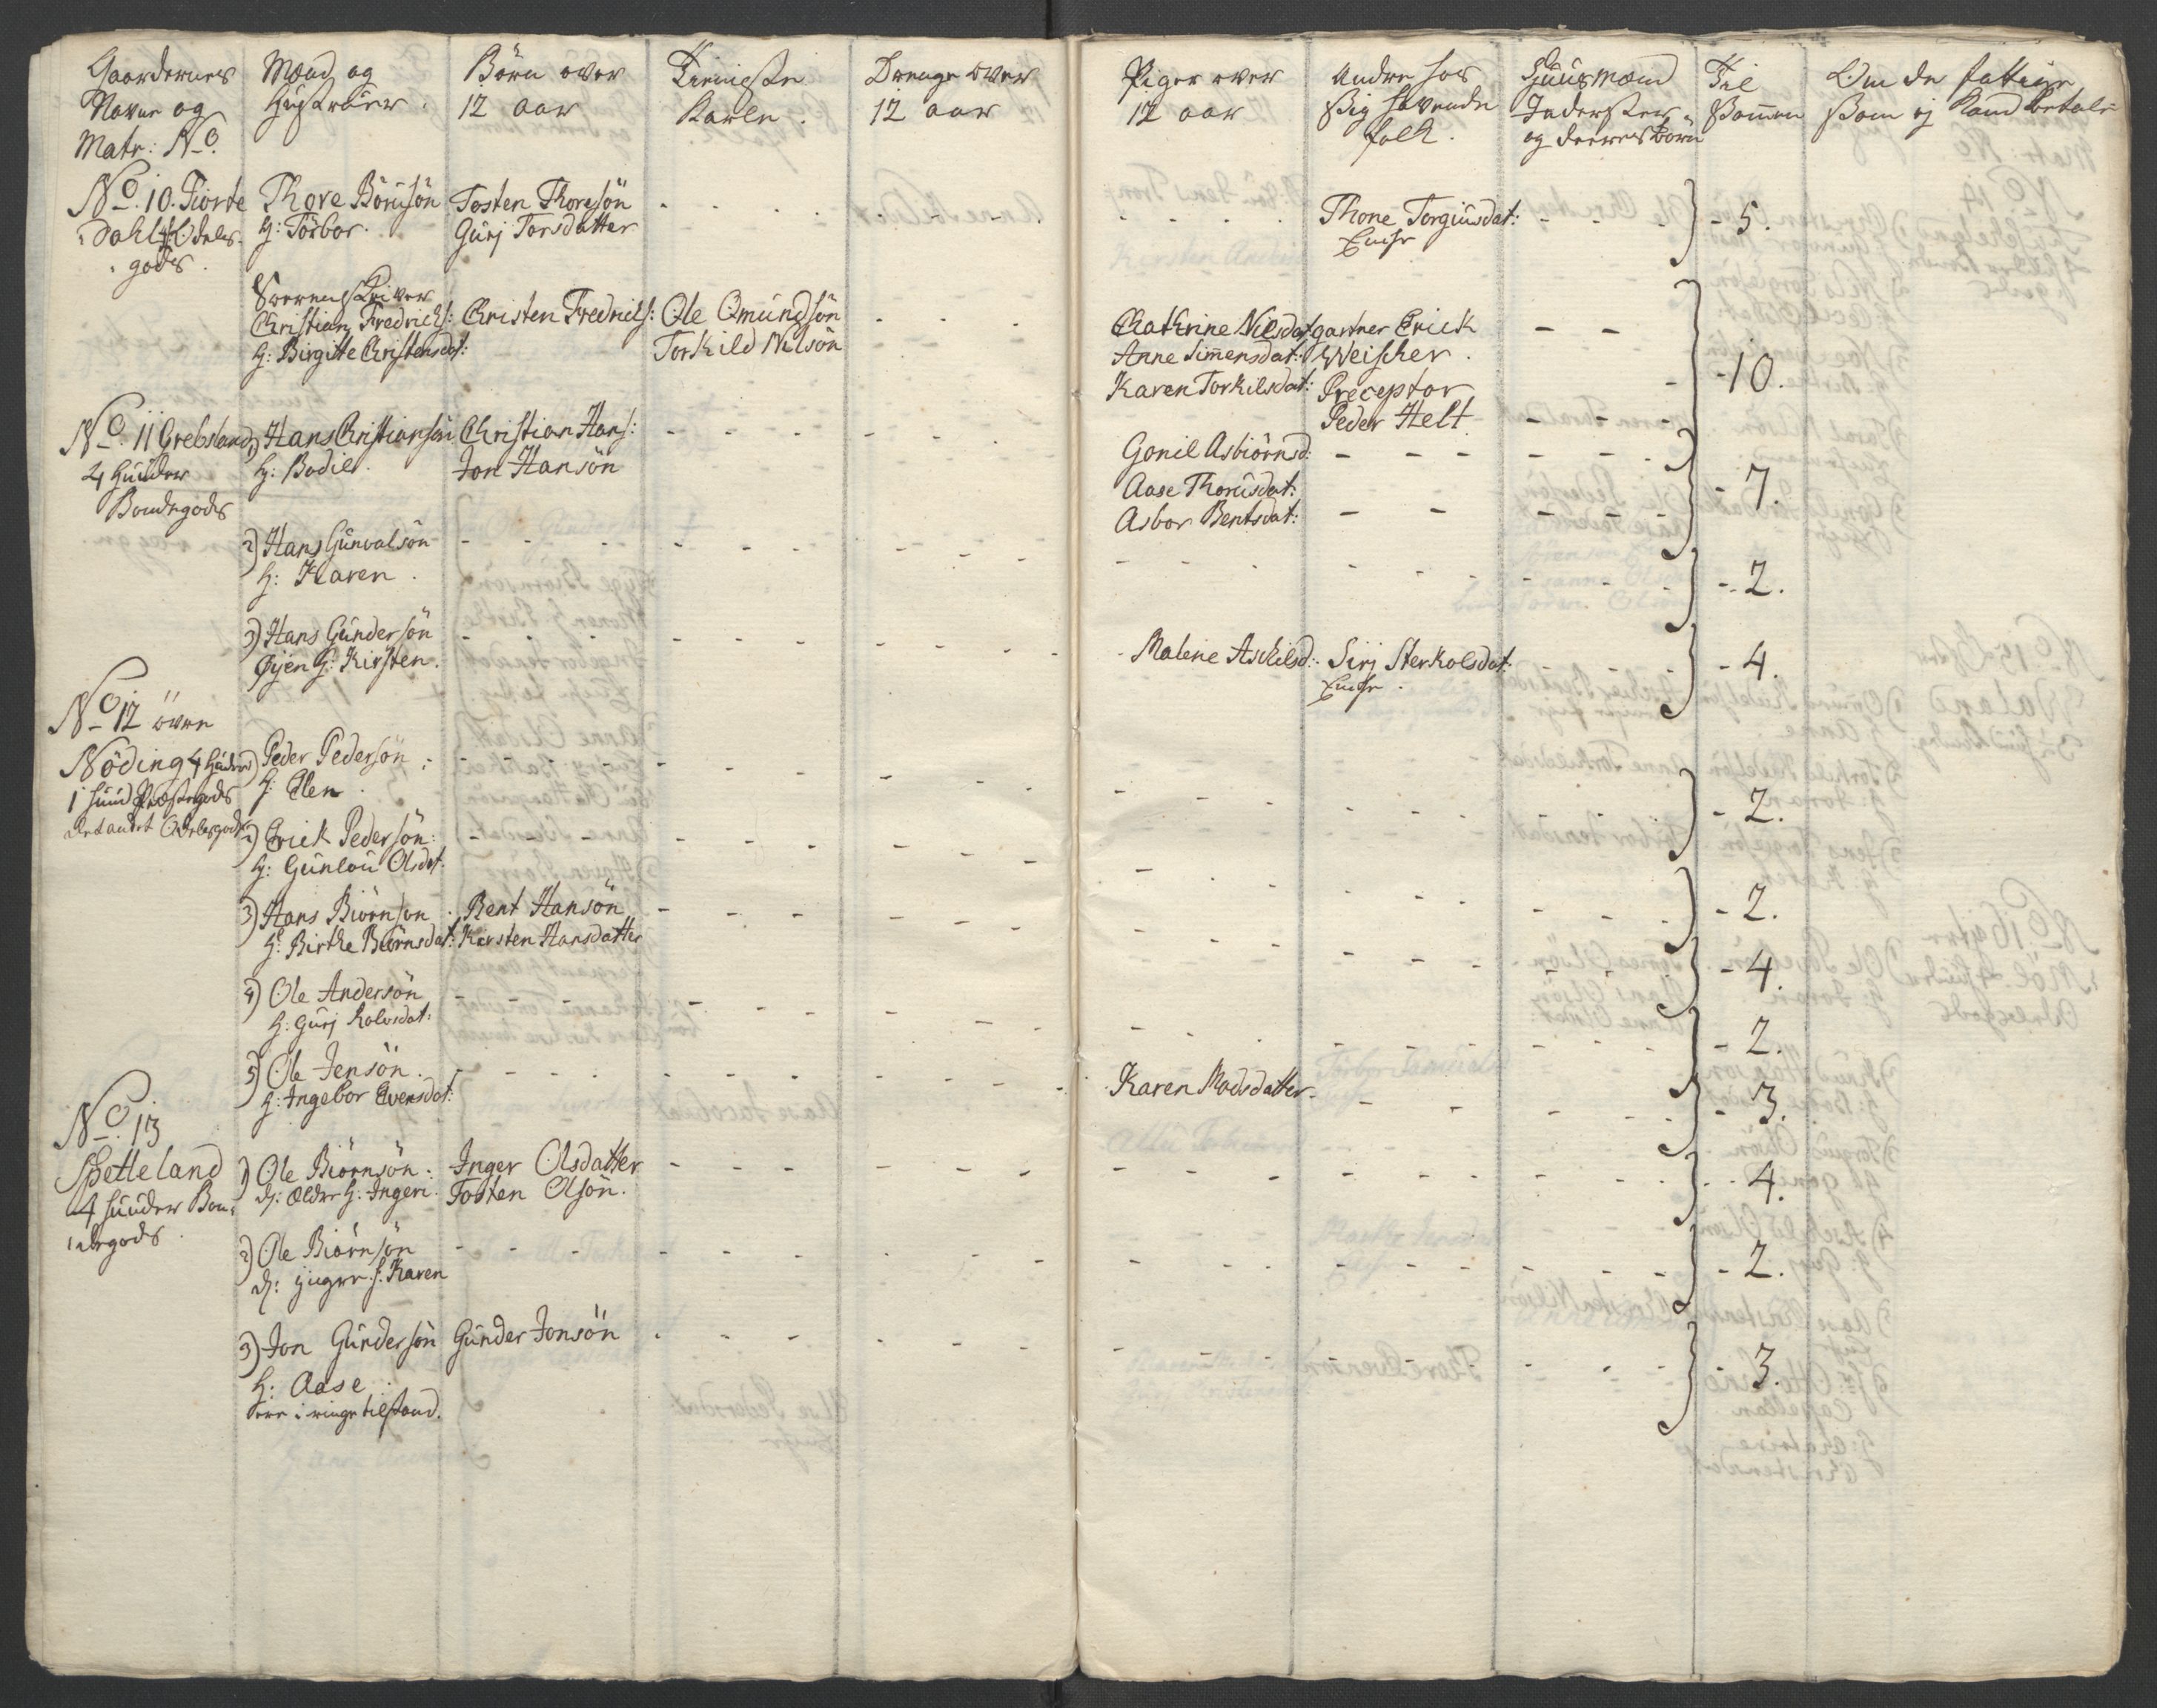 Gaardernes
Navne og
Matr: No.
Mænd og
Hustruer.
Börn over
12 aar
Tienneste
Karle.
Drenge over
12 aar
Piger over
12 aar
Andre hos
sig havende
folk.
Huusmænd
Inderster
og deres Börn
Til
Sammen
Om de fattige
som ej kand betale
No. 10. Tiorte
Dahl Odels
gods.
Thore Börnsön
H: Törbor.
Tosten Thoresön
Gurj Torsdatter
Thone Torgiusdat:
Enche
5.
Sorenskriver
Christian Fredrichs:
H: Birgitte Christensdat:
Christen Fredrichs:
Ole Omundsön
Torkild Nilsön
Chathrine Nilsdat
Anne Simensdat:
Karen Torkilsdat:
gartner Erick
Weischer.
Preceptor
Peder Helt
10.
No. 11 Grebsland
4 Huuder
Bondegods
1) Hans Christiansön
H: Bodil.
Christian Hans:
Jon Hansön
Gonil Asbiörnsd:
Aase Thorusdat:
Asbor Bentsdat:
7.
2) Hans Gunvalsön
H: Karen.
2.
3) Hans Gundersön
Øyen H: Kirsten.
Malene Askilsd:
Sirj Sterkolsdat:
Enche.
4.
No 12 övre
Nöding 4 Huder
1 huud Præstegods
det andet Odelsgods
1) Peder Pedersön
H: Elen
2.
2) Erick Pedersön:
H: Gunlou Olsdat.
2.
3) Hans Biörnson
H: Birthe Biörnsdat:
Bent Hansön
Kirsten Hansdatter
4.
4) Ole Andersön
H: Gurj Rolvsdat:
2.
5) Ole Jensön.
H: Ingebor Evensdat:
Karen Madsdatter
3.
No. 13
Spetteland
4 huuder Bon-
degods.
1) Ole Biörnsön:
d: Ældre H: Ingeri.
Inger Olsdatter
Tosten Olsön.
4.
2) Ole Biörnsön
d: yngre h. Karen
2.
3) Jon Gundersön
H: Aase
ere i ringe tilstand.
Gunder Jonsön
3.